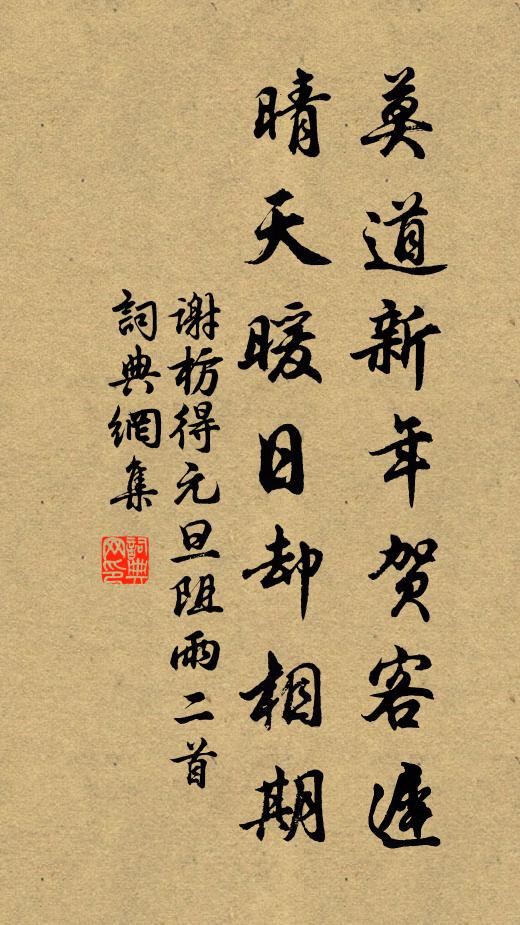 莫道新年贺客遲
晴天暖日却相期
谢枋得元旦阻雨二首
詞典網集
詞典网印